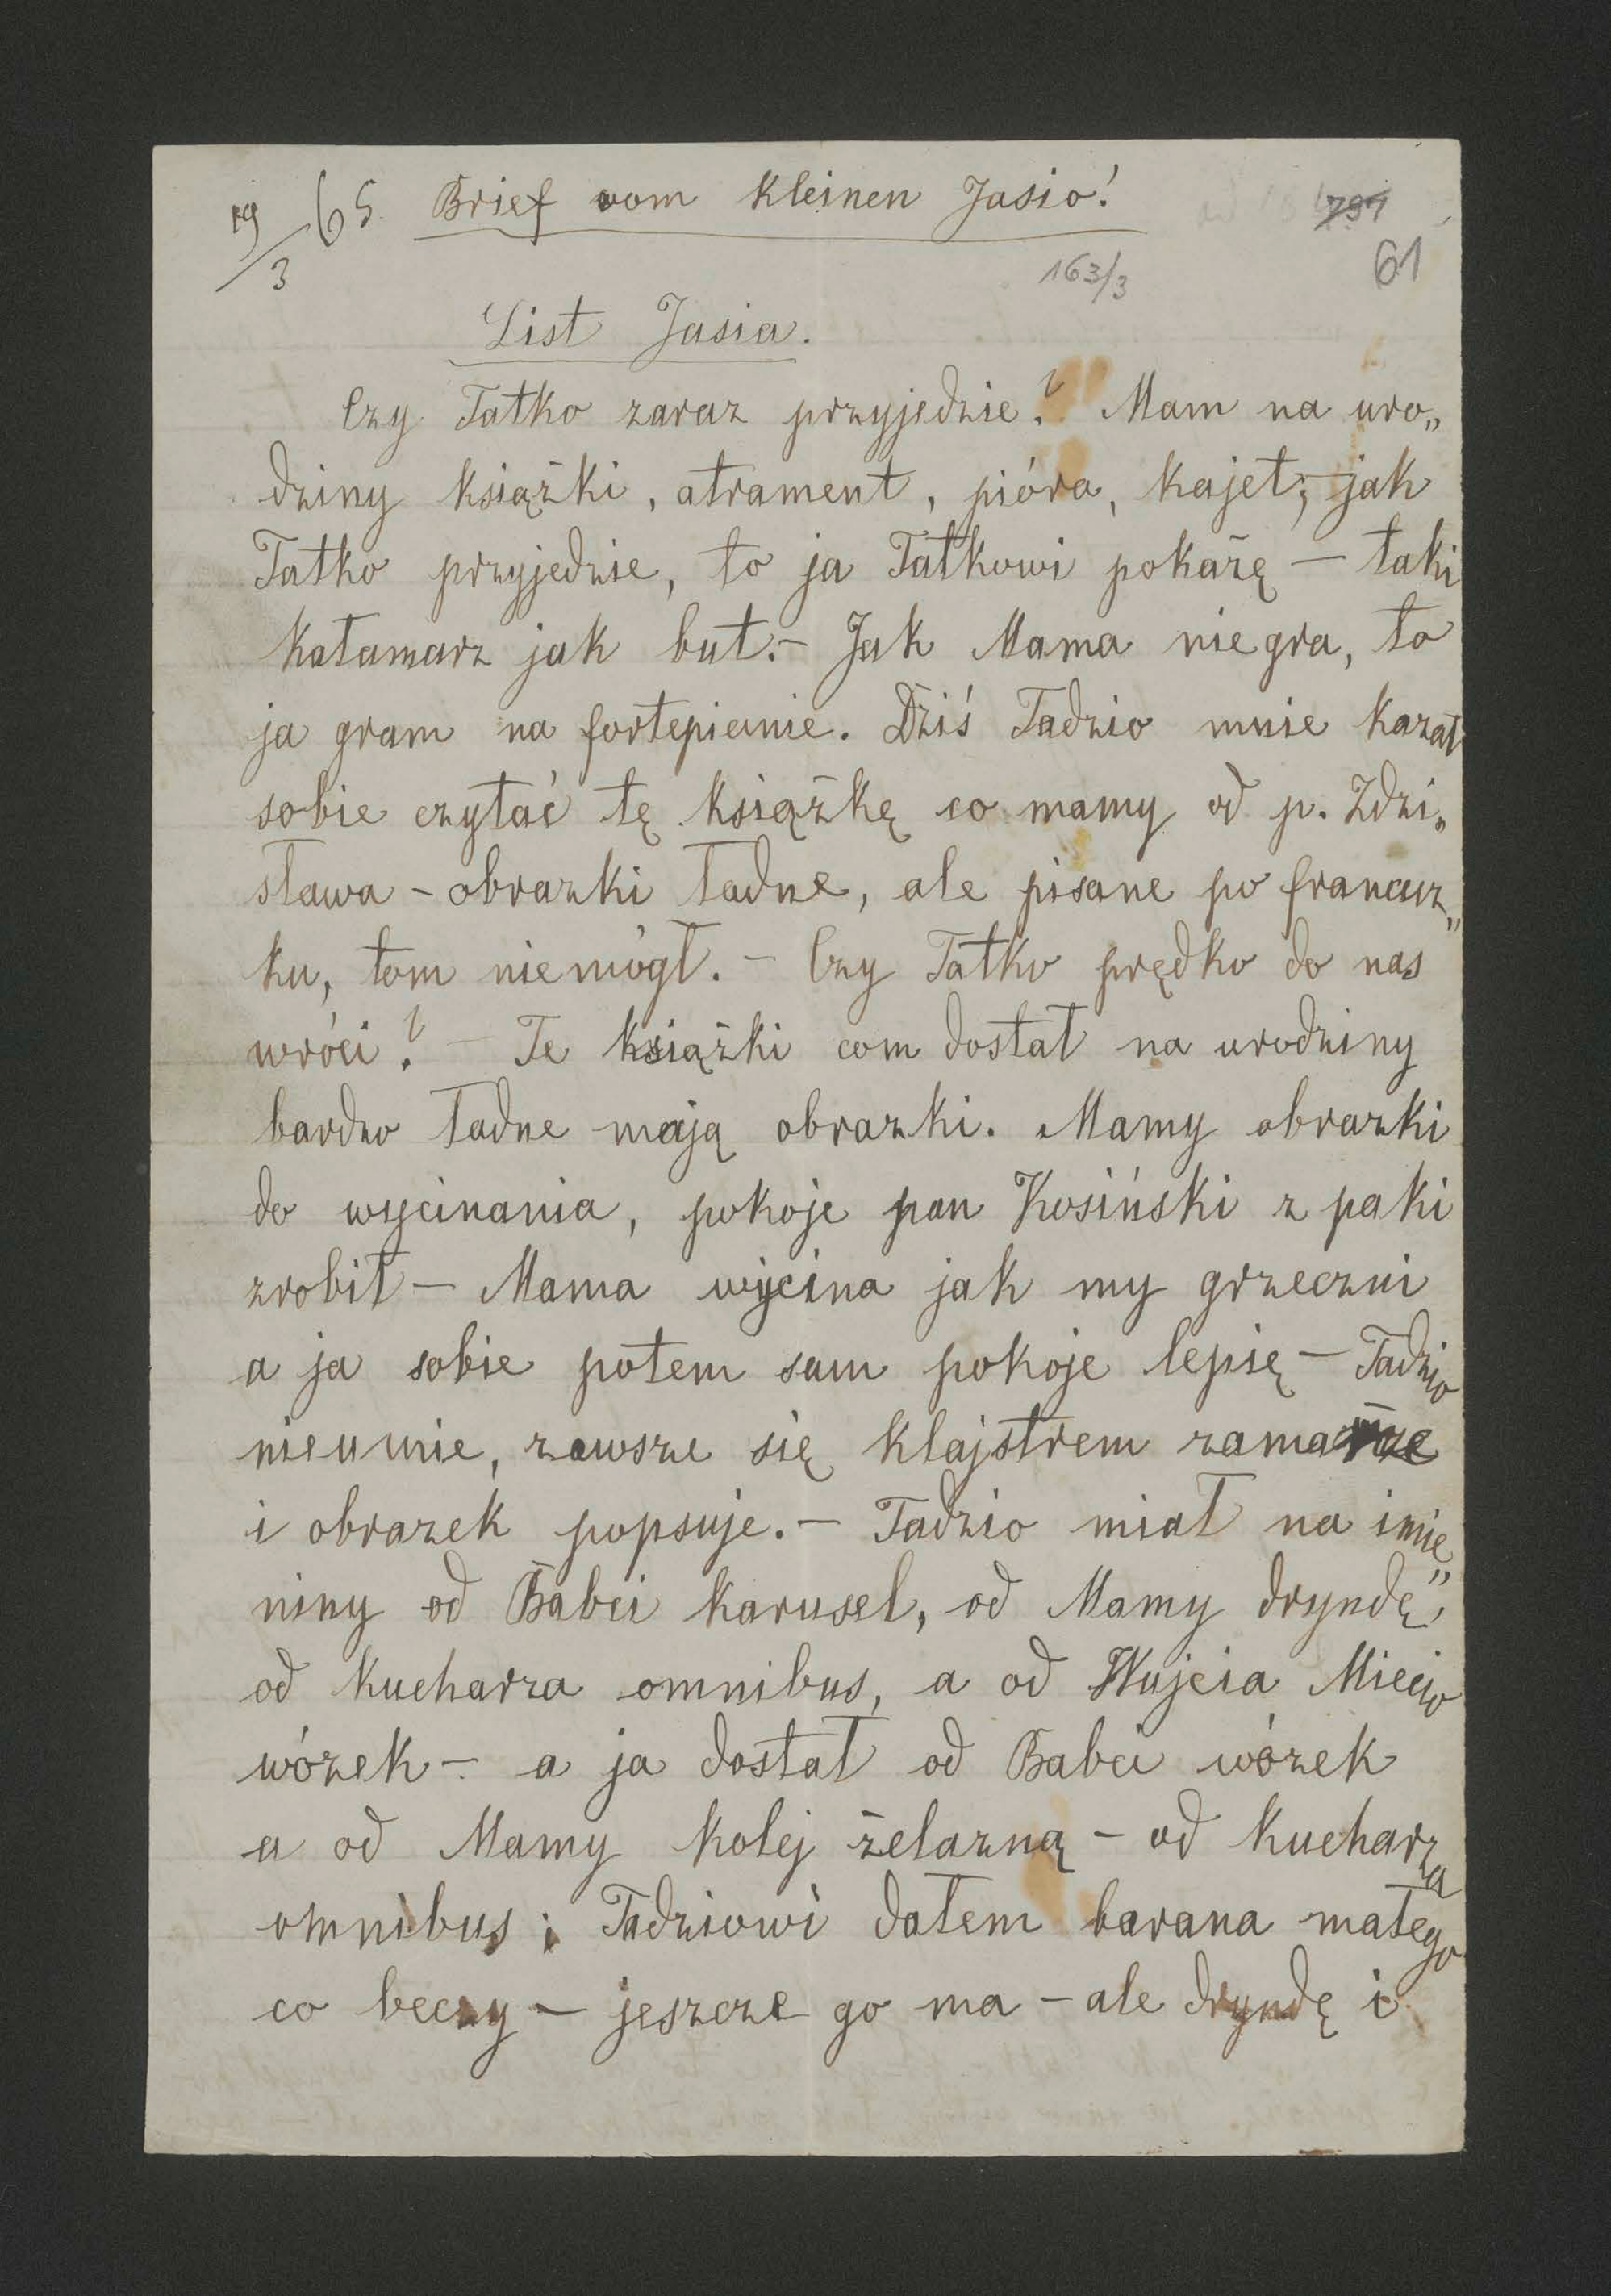 19/3 65. Brief vom kleinen Jasio!
791
61
163/3
List Jasia.
Czy Tatko zaraz przyjedzie? Mam na uro„
dziny książki, atrament, pióra, kajet; jak
Tatko przyjedzie, to ja Tatkowi pokażę – taki
kałamarz jak but. – Jak Mama niegra, to
ja gram na fortepianie. Dziś Tadzio mnie kazał
sobie czytać tę książkę co mamy od p. Zdzi„
sława – obrazki ładne, ale pisane po francuz„
ku, tom niemógł. – Czy Tatko prędko do nas
wróci? – Te książki com dostał na urodziny
bardzo ładne mają obrazki. Mamy obrazki
do wycinania, pokoje pan Kosiński z paki
zrobił – Mama wycina jak my grzeczni
a ja sobie potem sam pokoje lepię – Tadzio
nieumie, zawsze się klajstrem zamarze
i obrazek popsuje. – Tadzio miał na imie„
niny od Babci karusel, od Mamy dryndę,
od kucharza omnibus, a od Wujcia Miecia
wózek – a ja dostał od Babci wózek
a od Mamy kolej żelazną – od kucharza
omnibus; Tadziowi dałem barana małego
co beczy – jeszcze go ma – ale dryndę i